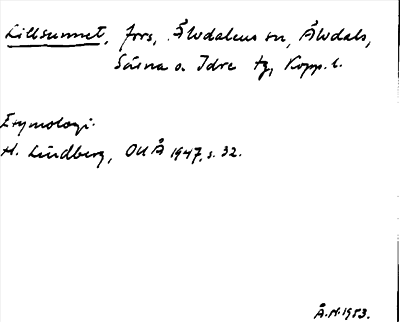 Lillsunnet, fors, Älvdalens sn, Älvdals,
Särna o. Idre tg, Kopp. l.
Etymologi:
H. Lindberg, OUÅ 1947, s. 32.
Å.H. 1953.